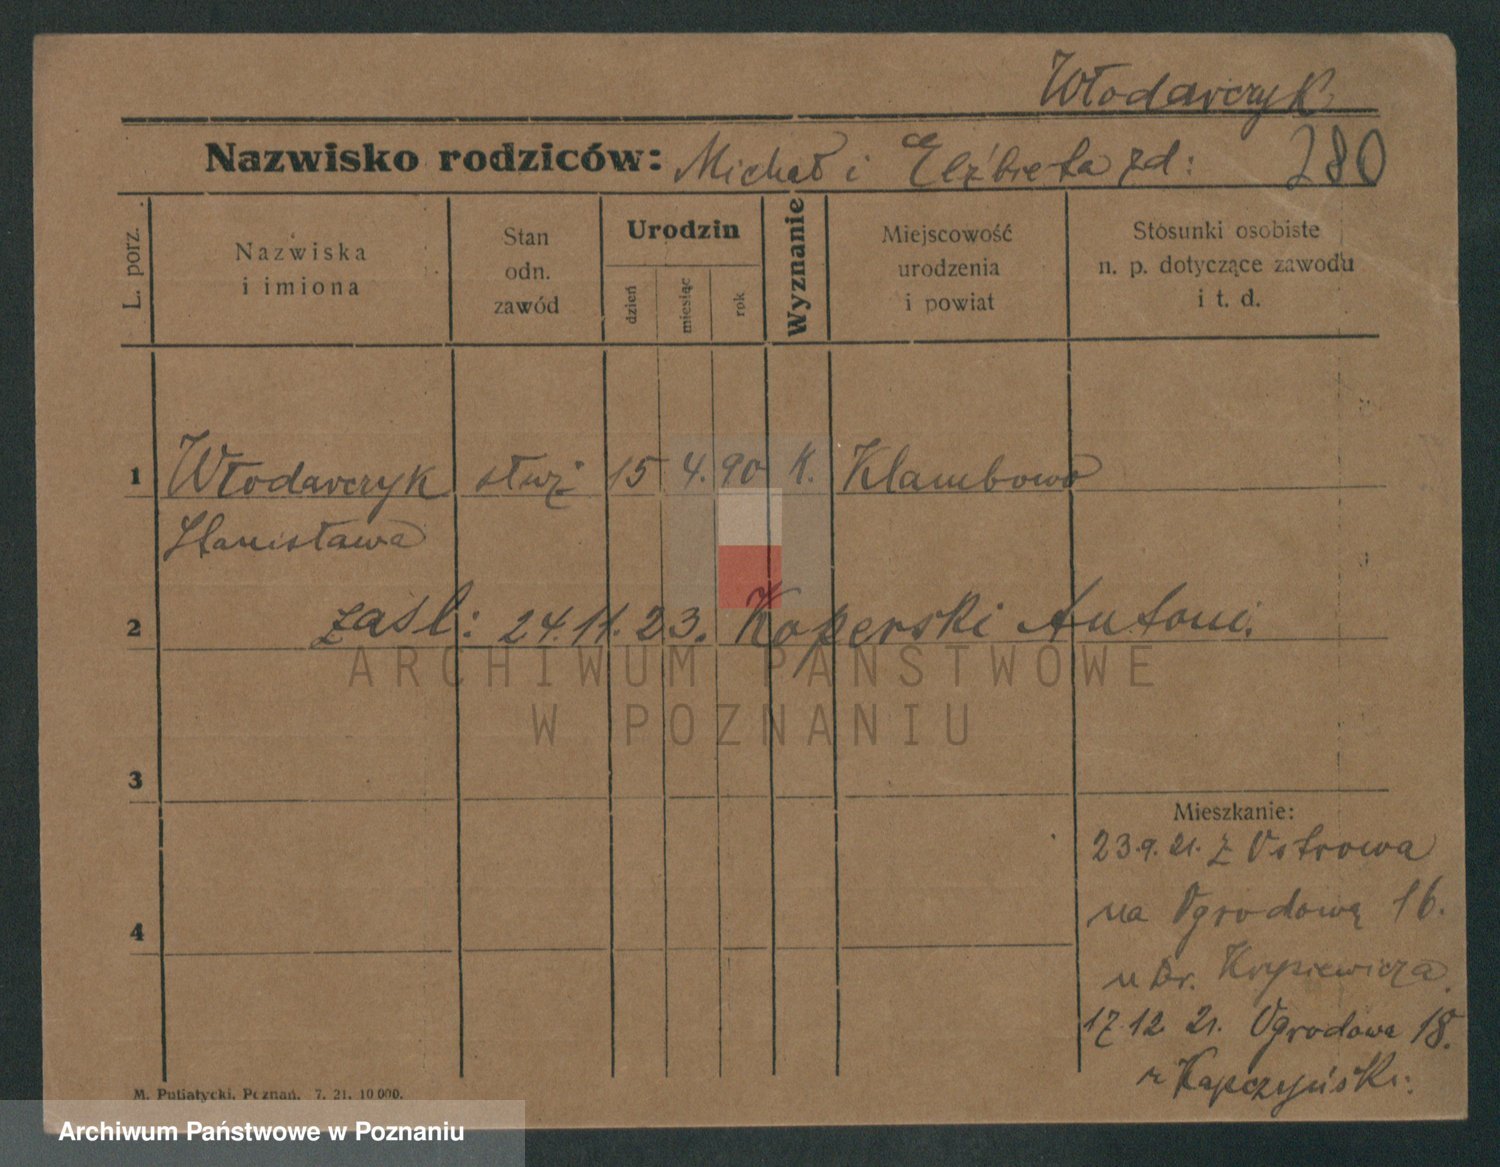 Włodarczyk
Nazwisko rodziców: Michał i Elżbieta zd:
280
L. porz.
Nazwiska
i imiona
Stan
odn.
zawód
Urodzin
dzień
miesiąc
rok
Wyznanie
Miejscowość
urodzenia
i powiat
Stosunki osobiste
n. p. dotyczące zawodu
i t. d.
1 Włodarczyk służ 15 4. 90 k. Klambowo
Stanisława
2 zaśl: 24.11.23. Koperski Antoni.
ARCHIWUM PAŃSTWOWE
W POZNANIU
3
Mieszkanie:
23.9.21. z Ostrowa
4
na Ogrodową 16.
u Dr. Krysiewicza.
17.12 21. Ogrodowa 18.
Kapczyński.
M. Putiatycki, Poznań. 7. 21. 10 000.
Archiwum Państwowe w Poznaniu